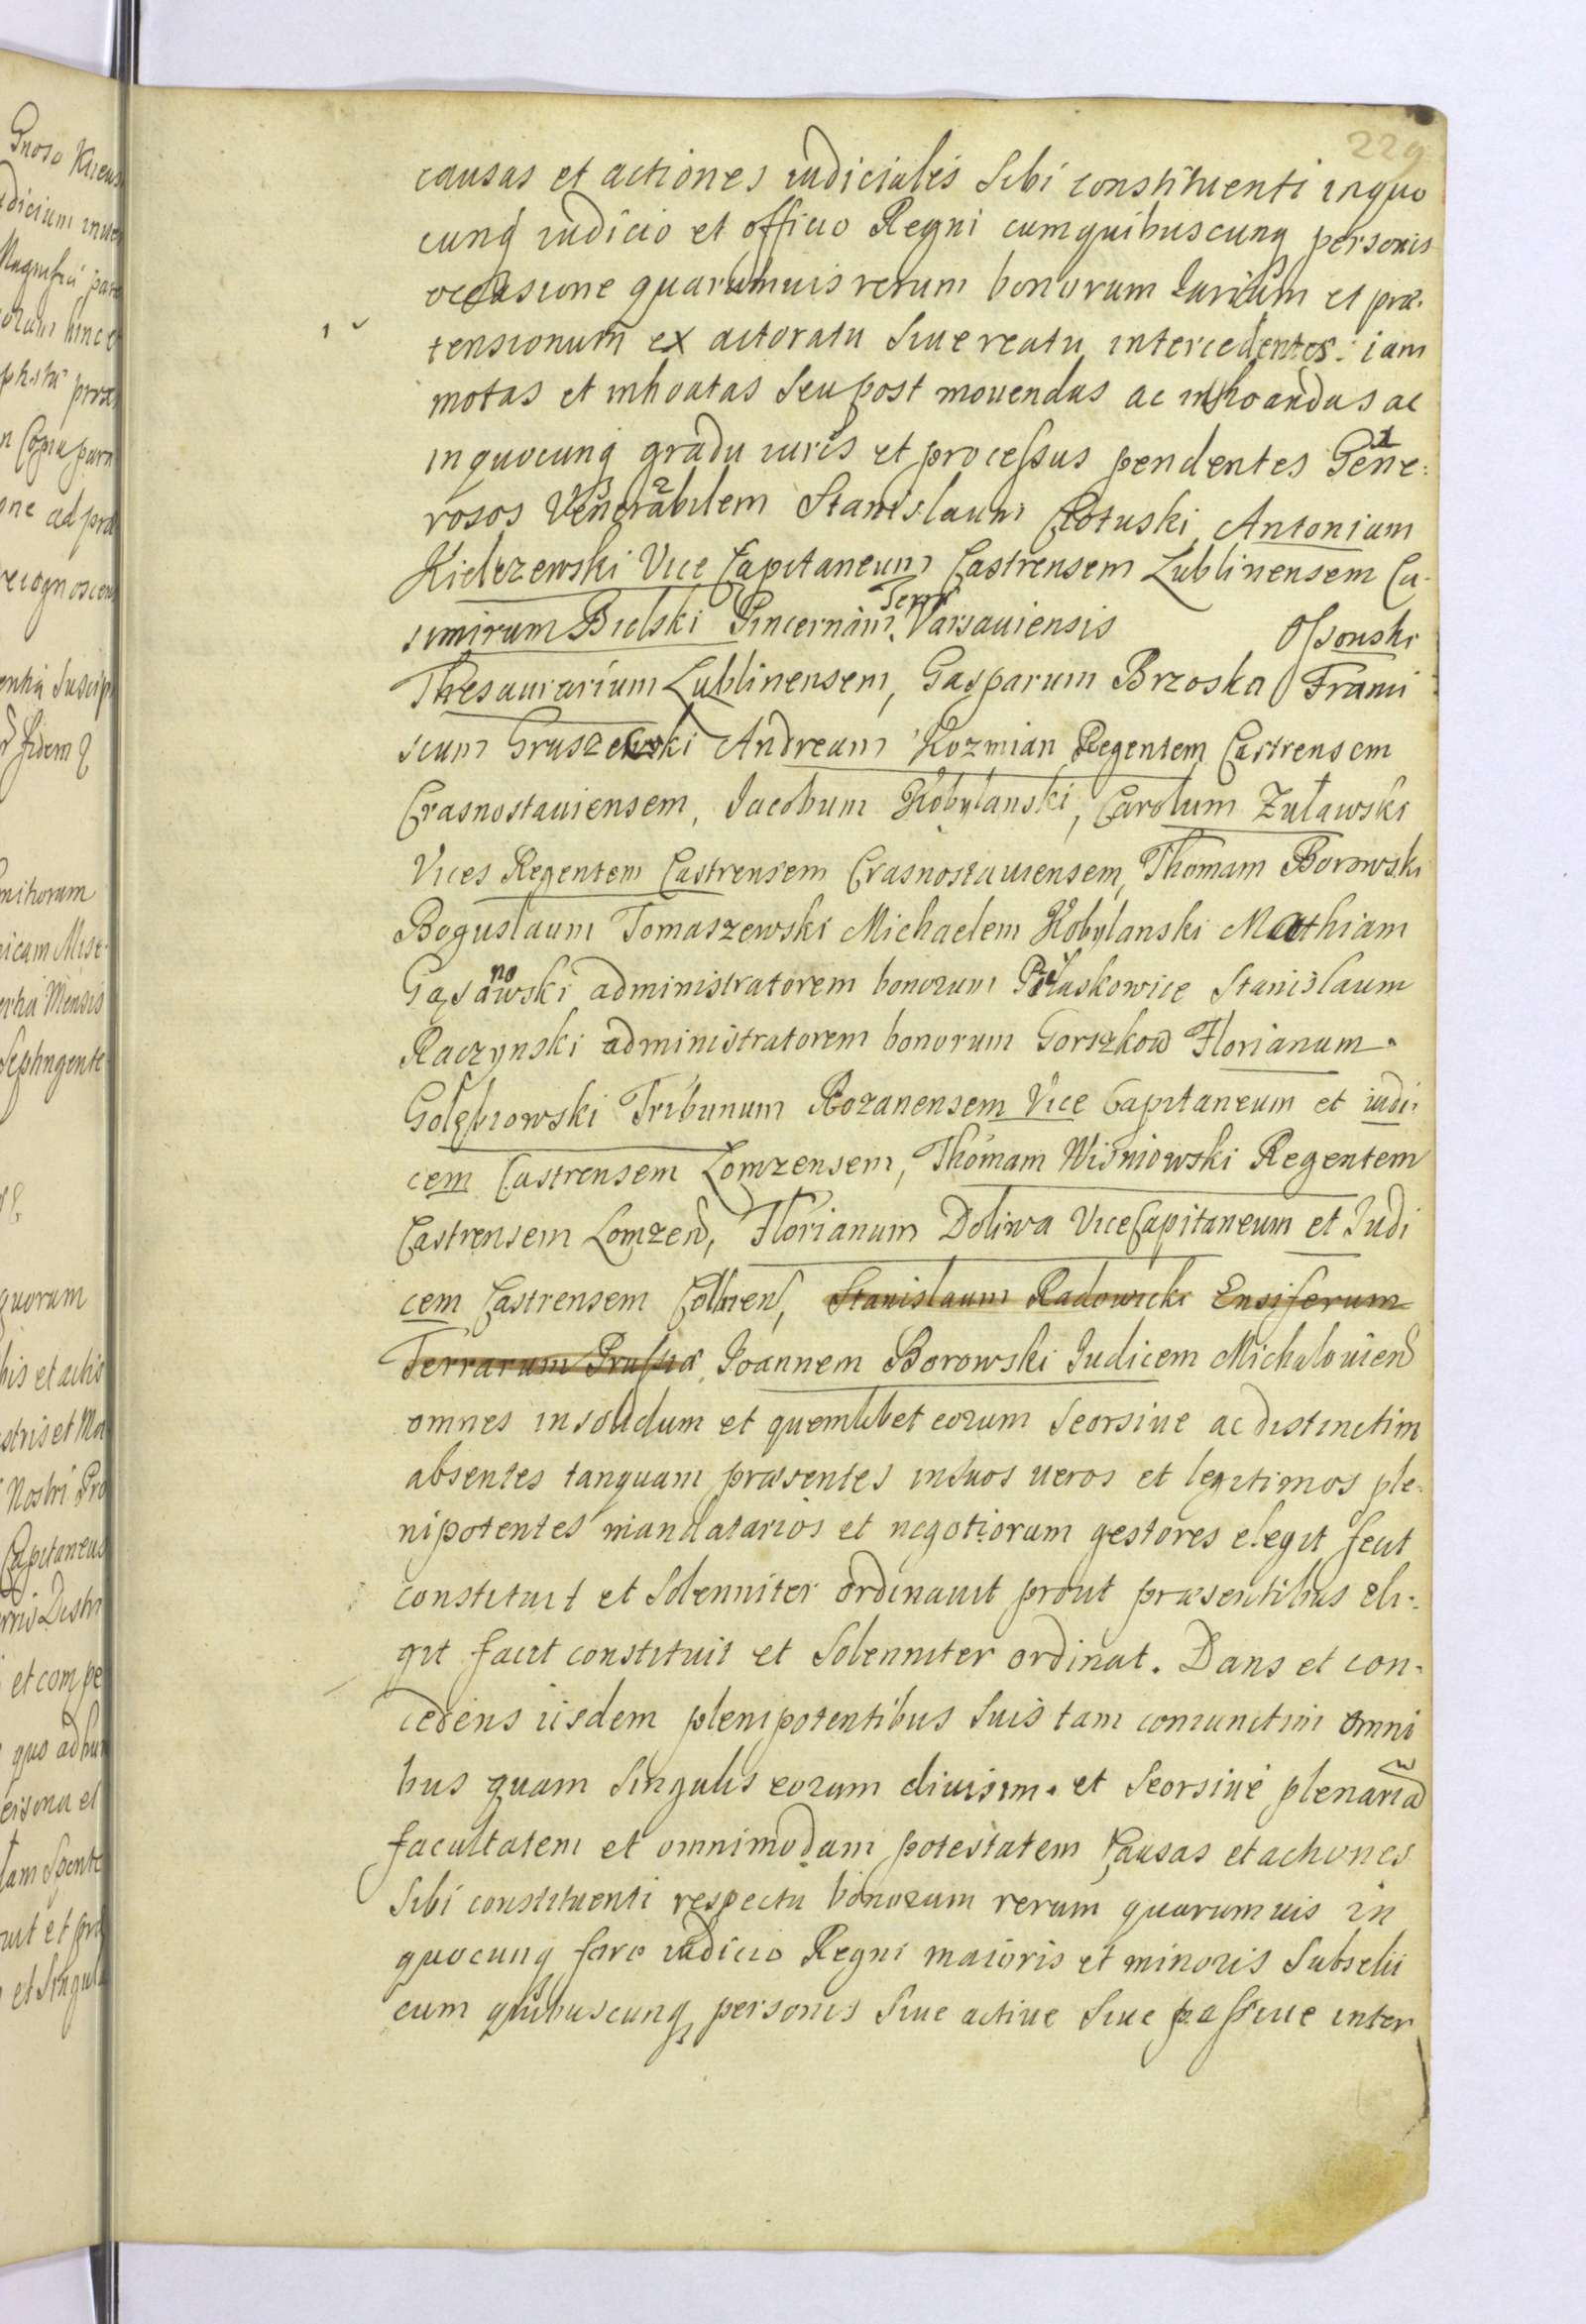 229
causas et actiones iudicialis Sibi constituenti inquo
cunq iudicio et officio Regni cumquibuscunq personis
occasione quarumuis rerum bonorum Iurium et præ-
tensionum ex actoratu Siue reatu intercedentes: iam
motas et inhoatas Seu post mouendas ac inhoandas ac
inquocunq gradu iuris et processus pendentes Gene:
rosos Venerabilem Stanislaum Antonium
Kielczewski Vice Capitaneum Castrensem Lublinensem Ca-
simirum Bielski Pincernam Terræ Varsauiensis Ossouski
Thesaurarium Lublinensem, Gasparum Brzoska Franci
scum Gruszewski Andream Kozmian Regentem Castrensem
Crasnostauiensem, Jacobum Kobylanski, Carolum Zuławski
Vices Regentem Castrensem Crasnostauiensem, Thomam Borowski
Boguslaum Tomaszewski Michaelem Kobylanski Mathiam
administratorem bonorum Stanislaum
Raczynski administratorem bonorum Gorszkow Florianum
Golębiowski Tribunum Rozanensem Vice Capitaneum et iudi-
cem Castrensem Lomzensem, Thomam Wiśniowski Regentem
Castrensem Lomzen, Florianum Doliwa ViceCapitaneum et Judi
cem Castrensem Colnen, Stanislaum Radowicki Ensiferum
Terrarum Prussiæ Joannem Borowski Judicem Michalouien
omnes insolidum et quemlibet eorum Seorsiue ac distinctim
absentes tanquam præsentes insuos ueros et legitimos ple-
nipotentes mandatarios et negotiorum gestores elegit fecit
constituit et Solenniter ordinauit prout præsentibus eli-
git facit constituit et Solenniter ordinat. Dans et con-
cedens iisdem plenipotentibus Suis tam coniunctim omni
bus quam Singulis eorum diuisim. et Seorsiue plenariã
facultatem et omnimodam potestatem Causas et actiones
Sibi constituenti respectu bonorum rerum quarumuis in
quocunq foro iudicio Regni maioris et minoris Subselii
cum quibuscunq personis Siue actiue Siue passiue inter